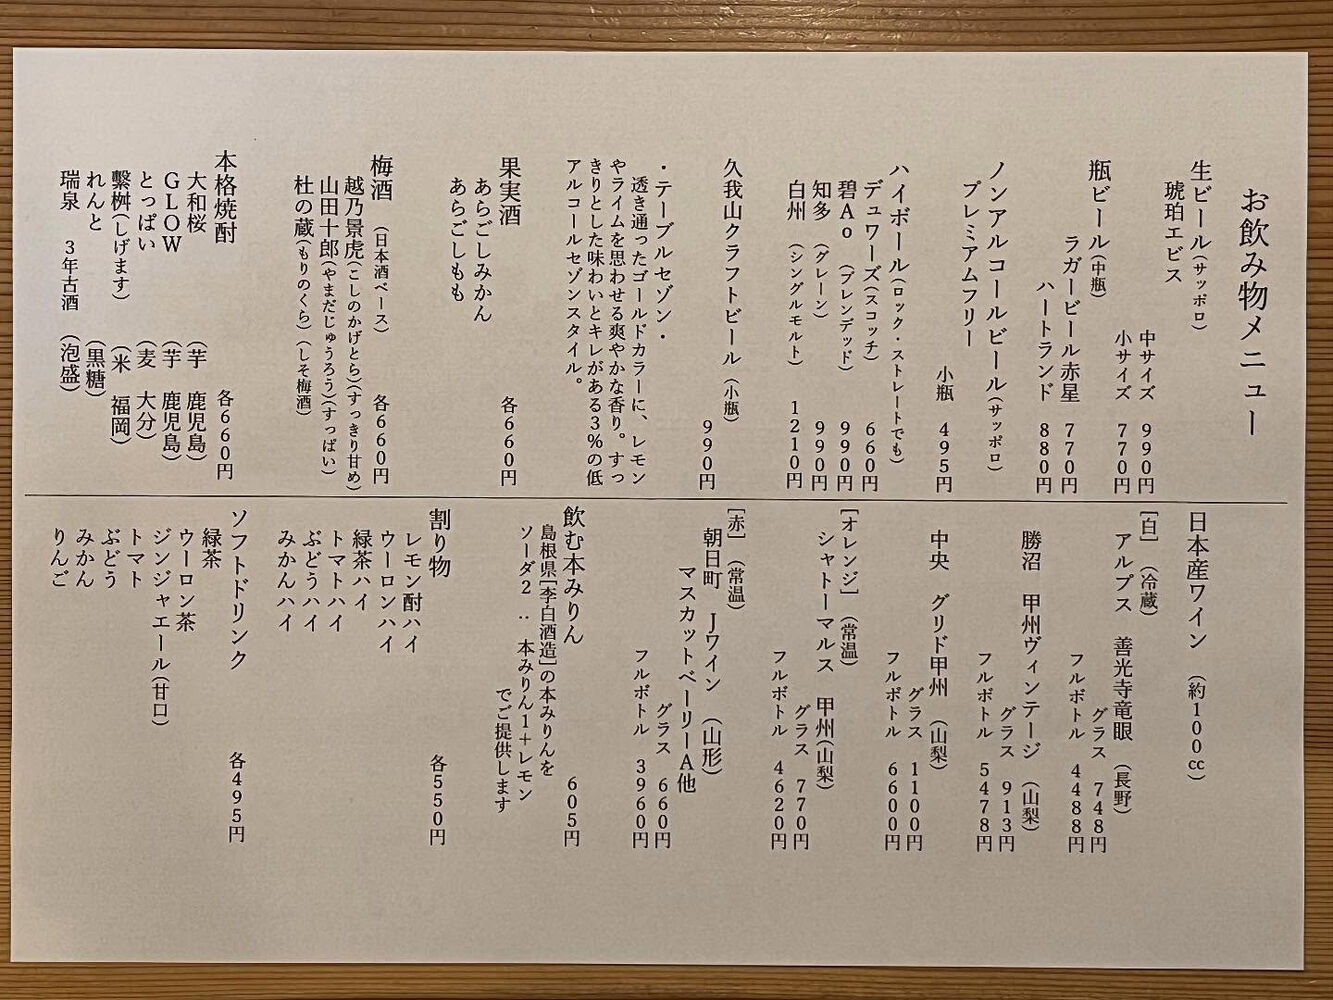 お飲み物メニュー
生ビール(サッポロ)
琥珀エビス
中サイズ 990円
小サイズ 770円
瓶ビール(中瓶)
ラガービール赤星 770円
ハートランド 880円
ノンアルコールビール(サッポロ)
プレミアムフリー
小瓶 495円
ハイボール(ロック・ストレートでも)
デュワーズ(スコッチ) 660円
碧Ao (ブレンデッド) 990円
知多 (グレーン) 990円
白州 (シングルモルト) 1210円
久我山クラフトビール (小瓶)
990円
・テーブルセゾン・
透き通ったゴールドカラーに、レモン
やライムを思わせる爽やかな香り。すっ
きりとした味わいとキレがある3%の低
アルコールセゾンスタイル。
果実酒 各660円
あらごしみかん
あらごしもも
梅酒 (日本酒ベース) 各660円
越乃景虎(こしのかげとら)(すっきり甘め)
山田十郎(やまだじゅうろう)(すっぱい)
杜の蔵(もりのくら)(しそ梅酒)
本格焼酎 各660円
大和桜 (芋 鹿児島)
GLOW (芋 鹿児島)
とっぱい (麦 大分)
繫桝(しげます) (米 福岡)
れんと (黒糖)
瑞泉 3年古酒 (泡盛)
日本産ワイン (約100cc)
[白] (冷蔵)
アルプス 善光寺竜眼 (長野)
グラス 748円
フルボトル 4488円
勝沼 甲州ヴィンテージ (山梨)
グラス 913円
フルボトル 5478円
中央 グリド甲州 (山梨)
グラス 1100円
フルボトル 6600円
[オレンジ] (常温)
シャトーマルス 甲州(山梨)
グラス 770円
フルボトル 4620円
[赤] (常温)
朝日町 Jワイン (山形)
マスカットベーリーA他
グラス 660円
フルボトル 3960円
飲む本みりん 605円
島根県[李白酒造]の本みりんを
ソーダ2 : 本みりん1+レモン
でご提供します
割り物 各550円
レモン酎ハイ
ウーロンハイ
緑茶ハイ
トマトハイ
ぶどうハイ
みかんハイ
ソフトドリンク 各495円
緑茶
ウーロン茶
ジンジャエール(甘口)
トマト
ぶどう
みかん
りんご